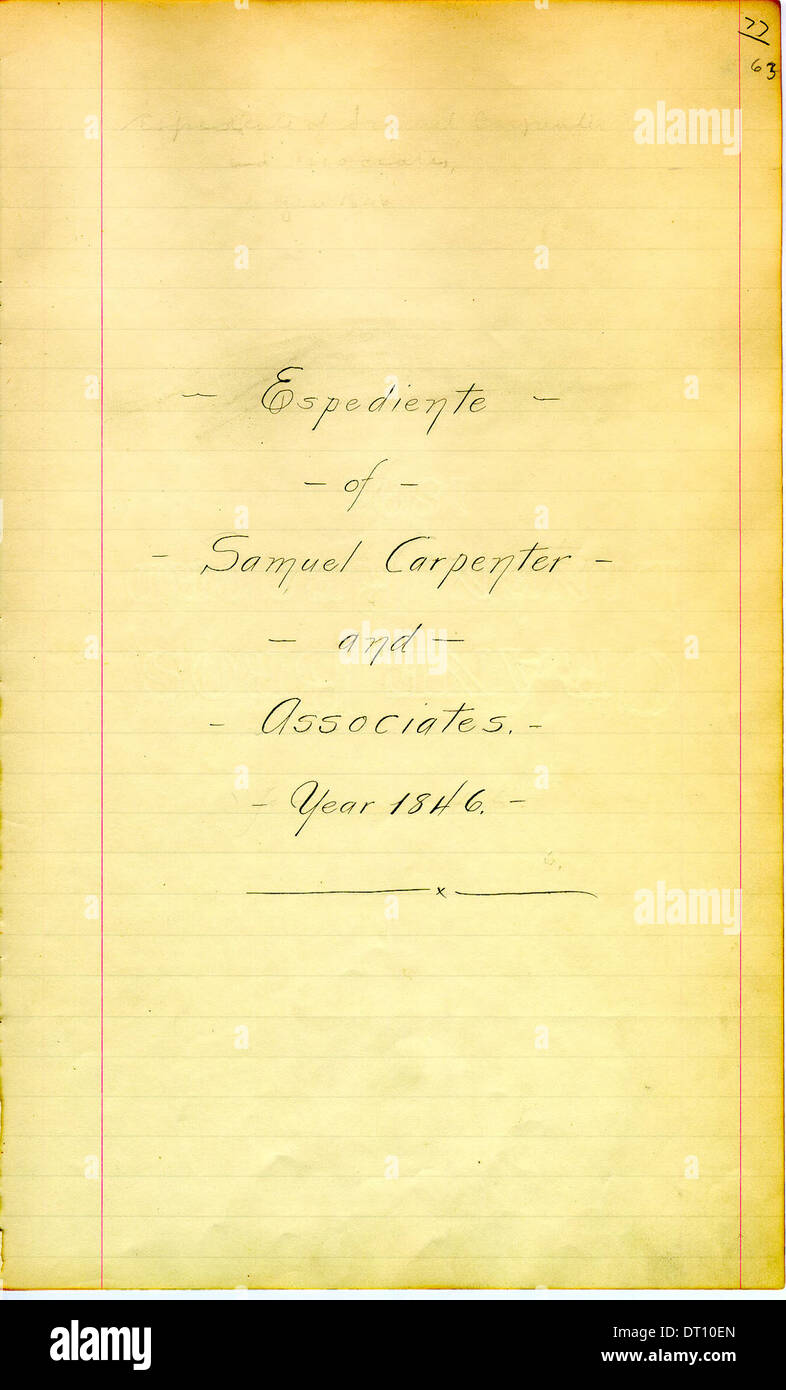 77
63
- Espediente -
- of -
- Samuel Carpenter -
- and -
- Associates. -
- Year 1846. -
x
alamy
Image ID: DT10EN
www.alamy.com